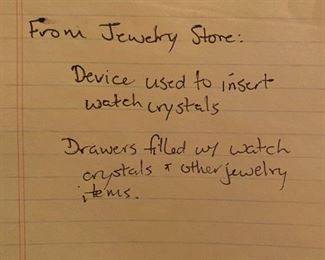 From Jewelry Store:
Device used to insert
watch crystals
Drawers filled w/ watch
crystals & other jewelry
items.